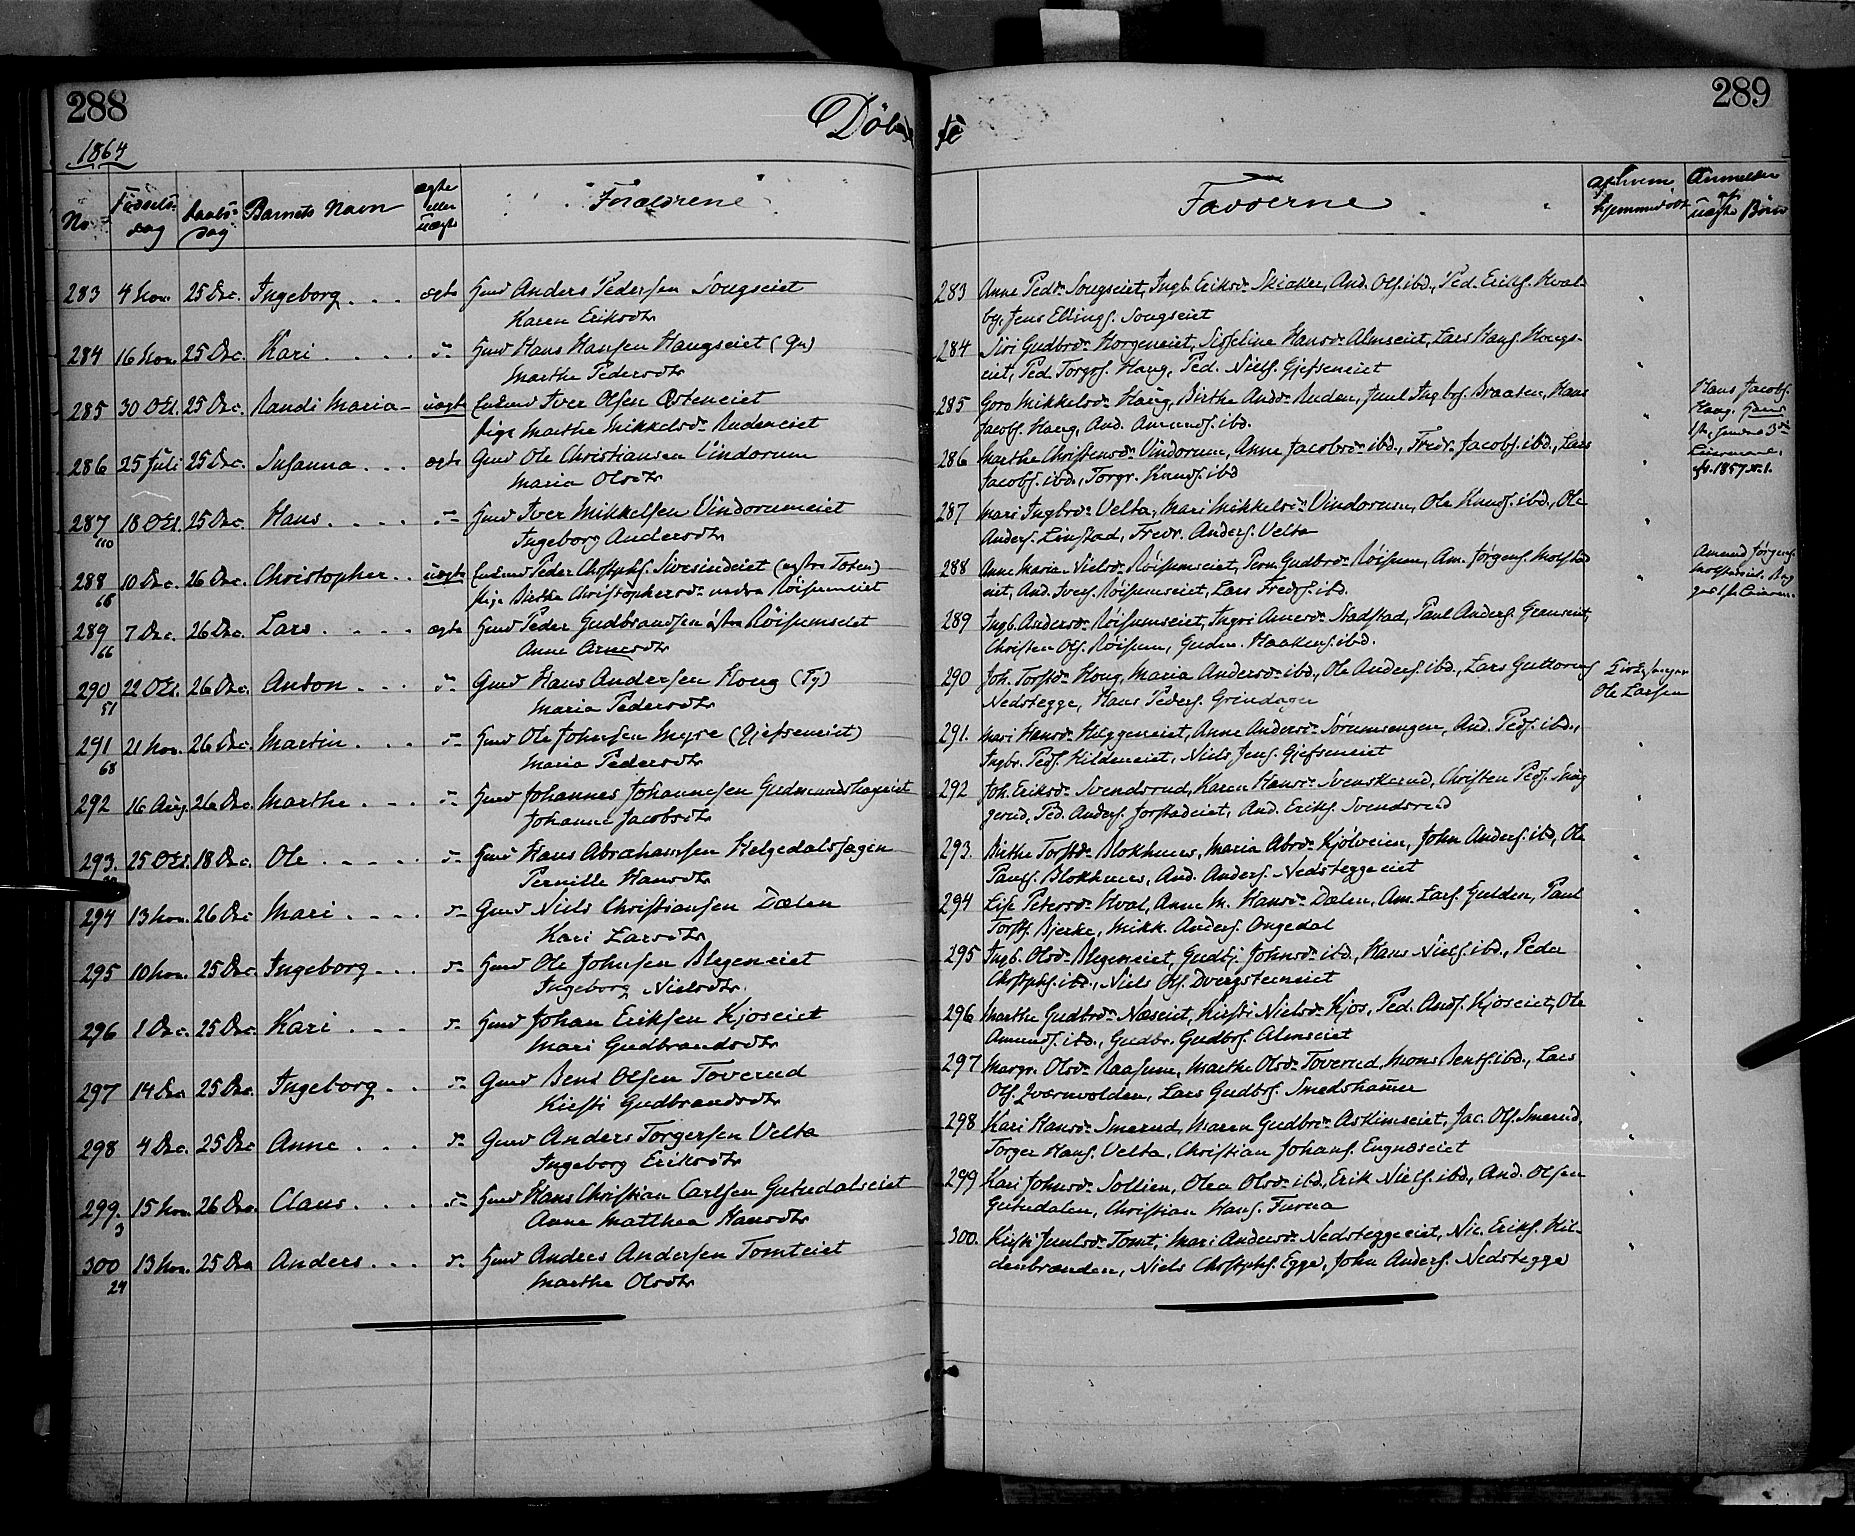 288
Døbte
289
1864
No Fødsels-dag Daabs-dag Barnets Navn ægte eller uægte Forældrene
283 4 Nov. 25 Dec. Ingeborg ægte Gmd Anders Pedersen Songseiet
Karen Eriksdtr
284 16 Nov. 25 Dec. Kari Hmd Hans Hansen Haugseiet (Gr)
Marthe Pedersdtr
285 30 Oct. 25 Dec. Randi Maria uægte Iver Olsen
Pige Marthe Mikkelsdr Rudeneiet
286 25 Juli 25 Dec. Susanna ægte Gmd Ole Christiansen Vindorum
Maria Olsdtr
287 18 Oct. 25 Dec. Hans Hmd Iver Mikkelsen Vindorumeiet
110 Ingeborg Andersdtr
288 10 Dec. 26 Dec. Christopher uægte Peder Sivesindeiet
68 Pige Birthe Christophersdr Røisumeiet
289 7 Dec. 26 Dec. Lars ægte Hmd Peder Gudbrandsen Røisumseiet
66 Anne Arnesdtr
290 22 Oct. 26 Dec. Anton Gmd Hans Andersen Hong (Ty)
51 Maria Pedersdtr
291 21 Nov. 26 Dec. Martin Hmd Ole Johnsen Myre (Gjefseneiet)
68 Maria Pedersdtr
292 16 Aug. 26 Dec. Marthe Hmd Johannes Johannesen
Johanne Jacobsdtr
293. 25 Oct. 18 Dec. Ole Hmd Hans Abrahamsen Helgedalshagen
Pernille Hansdtr
294 13 Nov. 26 Dec Mari Gmd Niels Christiansen Dælen
Kari Larsdtr
295 10 Nov. 25 Dec. Ingeborg Hmd Ole Johnsen Blegeneiet
Ingeborg Nielsdtr.
296 1 Dec. 25 Dec. Kari Hmd Johan Eriksen Kjoseiet
Mari Gudbrandsdtr
297 14 Dec 25 Dec. Ingeborg Gmd Bent Olsen Toverud
Kirsti Gudbrandsdtr
298 4 Dec. 25 Dec Anne Gmd Anders Torgersen Velta
Ingeborg Eriksdtr
299. 15 Nov. 26 Dec. Claus Hmd Hans Christian Carlsen
3 Anne Matthea Hansdtr
300 13 Nov. 25 Dec Anders Hmd Andres Andersen Tomteiet
24 Marthe Olsdtr
Fadderne Af hvem hjemmedøbt Anmelder uægte Børn
283 Anne Pedsdr Songseiet, Ingb. Eriksdr Skiaker, And. Ols. ibd., Ped. Eriks. Hval-
by, Jens Ellings. Songseiet
284 Siri Gudbrdr Horgeneiet, Hansdr Almseiet, Lars Hans. Hongs-
eiet, Ped. Torgs. Haug, Ped. Niels. Gjefseneiet
285 Goro Mikkelsdr Haug, Birthe Andsdr Ruden, Juul Ingbrs. Braaten, Hans
Jacobs. Haug, And. Amunds. ibd.
Hans Jacobs.
Haug.
fr. 1857 n. 1.
286 Marthe Christensdr Vindorum, Anne Jacobsdr ibd., Fredr. Jacobs. ibd., Lars
Jacobs. ibd., Torgr. Knuds. ibd
287 Mari Ingbrdr Velta, Mari Mikkelsdr Vindorum, Ole Knuds. ibd., Ole
Anders. Linstad, Fredr. Anders. Velta
288 Anne Maria Nielsdr Røisumseiet, Pern. Gudbrdr Røisum, Am. Jørgens. Molstad-
eiet, And. Ivers. Røisumseiet, Lars Freds. ibd.
Amund Jørgens.
289 Ingb. Andersdr Røisumseiet, Ingri Arnesdr Stadstad, Paul Anders. Granseiet,
Christen Ols. Røisum, Gudm. Haakens. ibd.
290 Joh. Torstdr Hong, Maria Andersdr ibd., Ole Anders. ibd., Lars Guttorms
Nedstegge, Hans Peders. Grindager
Kirkesanger
Ole Larsen
291. Mari Hansdr Heggeneiet, Anne Andersdr Sørumsengen, And. Peds. ibd.,
Ingbr. Peds. Hildeneiet, Niels Jens. Gjefseneiet
292 Joh. Eriksdr Svendsrud, Karen Hansdr Svenskerud, Christen Peds.
gerud, Ped. Anders. Jorstadeiet, And. Eriks. Svendsrud
293. Birthe Torstdr Blokhuus, Maria Abrdr Kjølveien, John Anders. ibd, Ole
Pauls. Blokhuus, And. Anders. Nedsteggeeiet
294 Lise Petersdr Hval, Anne M. Hansdr Dælen, Am. Lars. Gulden, Paul
Torsts. Bjerke, Mikk. Anders. Ongedal
295 Ingb. Olsdr Blegeneiet, Gudbj. Johnsdr ibd., Hans Niels. ibd., Peder
Chrstphs. ibd., Niels Ols. Dvergsteneiet
296 Marthe Gudbrdr Næseiet, Kirsti Nielsdr Kjos, Ped. Ands. Kjoseiet, Ole
Amunds. ibd., Gudbr. Gudbrs. Almseiet
297 Margr. Olsdr Raasum, Marthe Olsdr Toverud, Mons Bents. ibd., Lars
Ols. Kværnvolden, Lars Gudbrs. Smedshammer
298 Kari Hansdr Smerud, Maren Gudbrdr Askimseiet, Jac. Ols. Smerud,
Torger Hans. Velta, Christian Johans. Engnæseiet
299 Kari Johnsdr Sollien, Olea Olsdr ibd., Erik Niels. ibd., And. Olsen
Gutudalen, Christian Hans. Furua
300. Kirsti Juulsdr Tomt, Mari Andersdr Nedsteggeeiet, Nic. Eriks. Hil-
denbranden, Niels Chrstphs. Egge, John Anders. Nedstegge